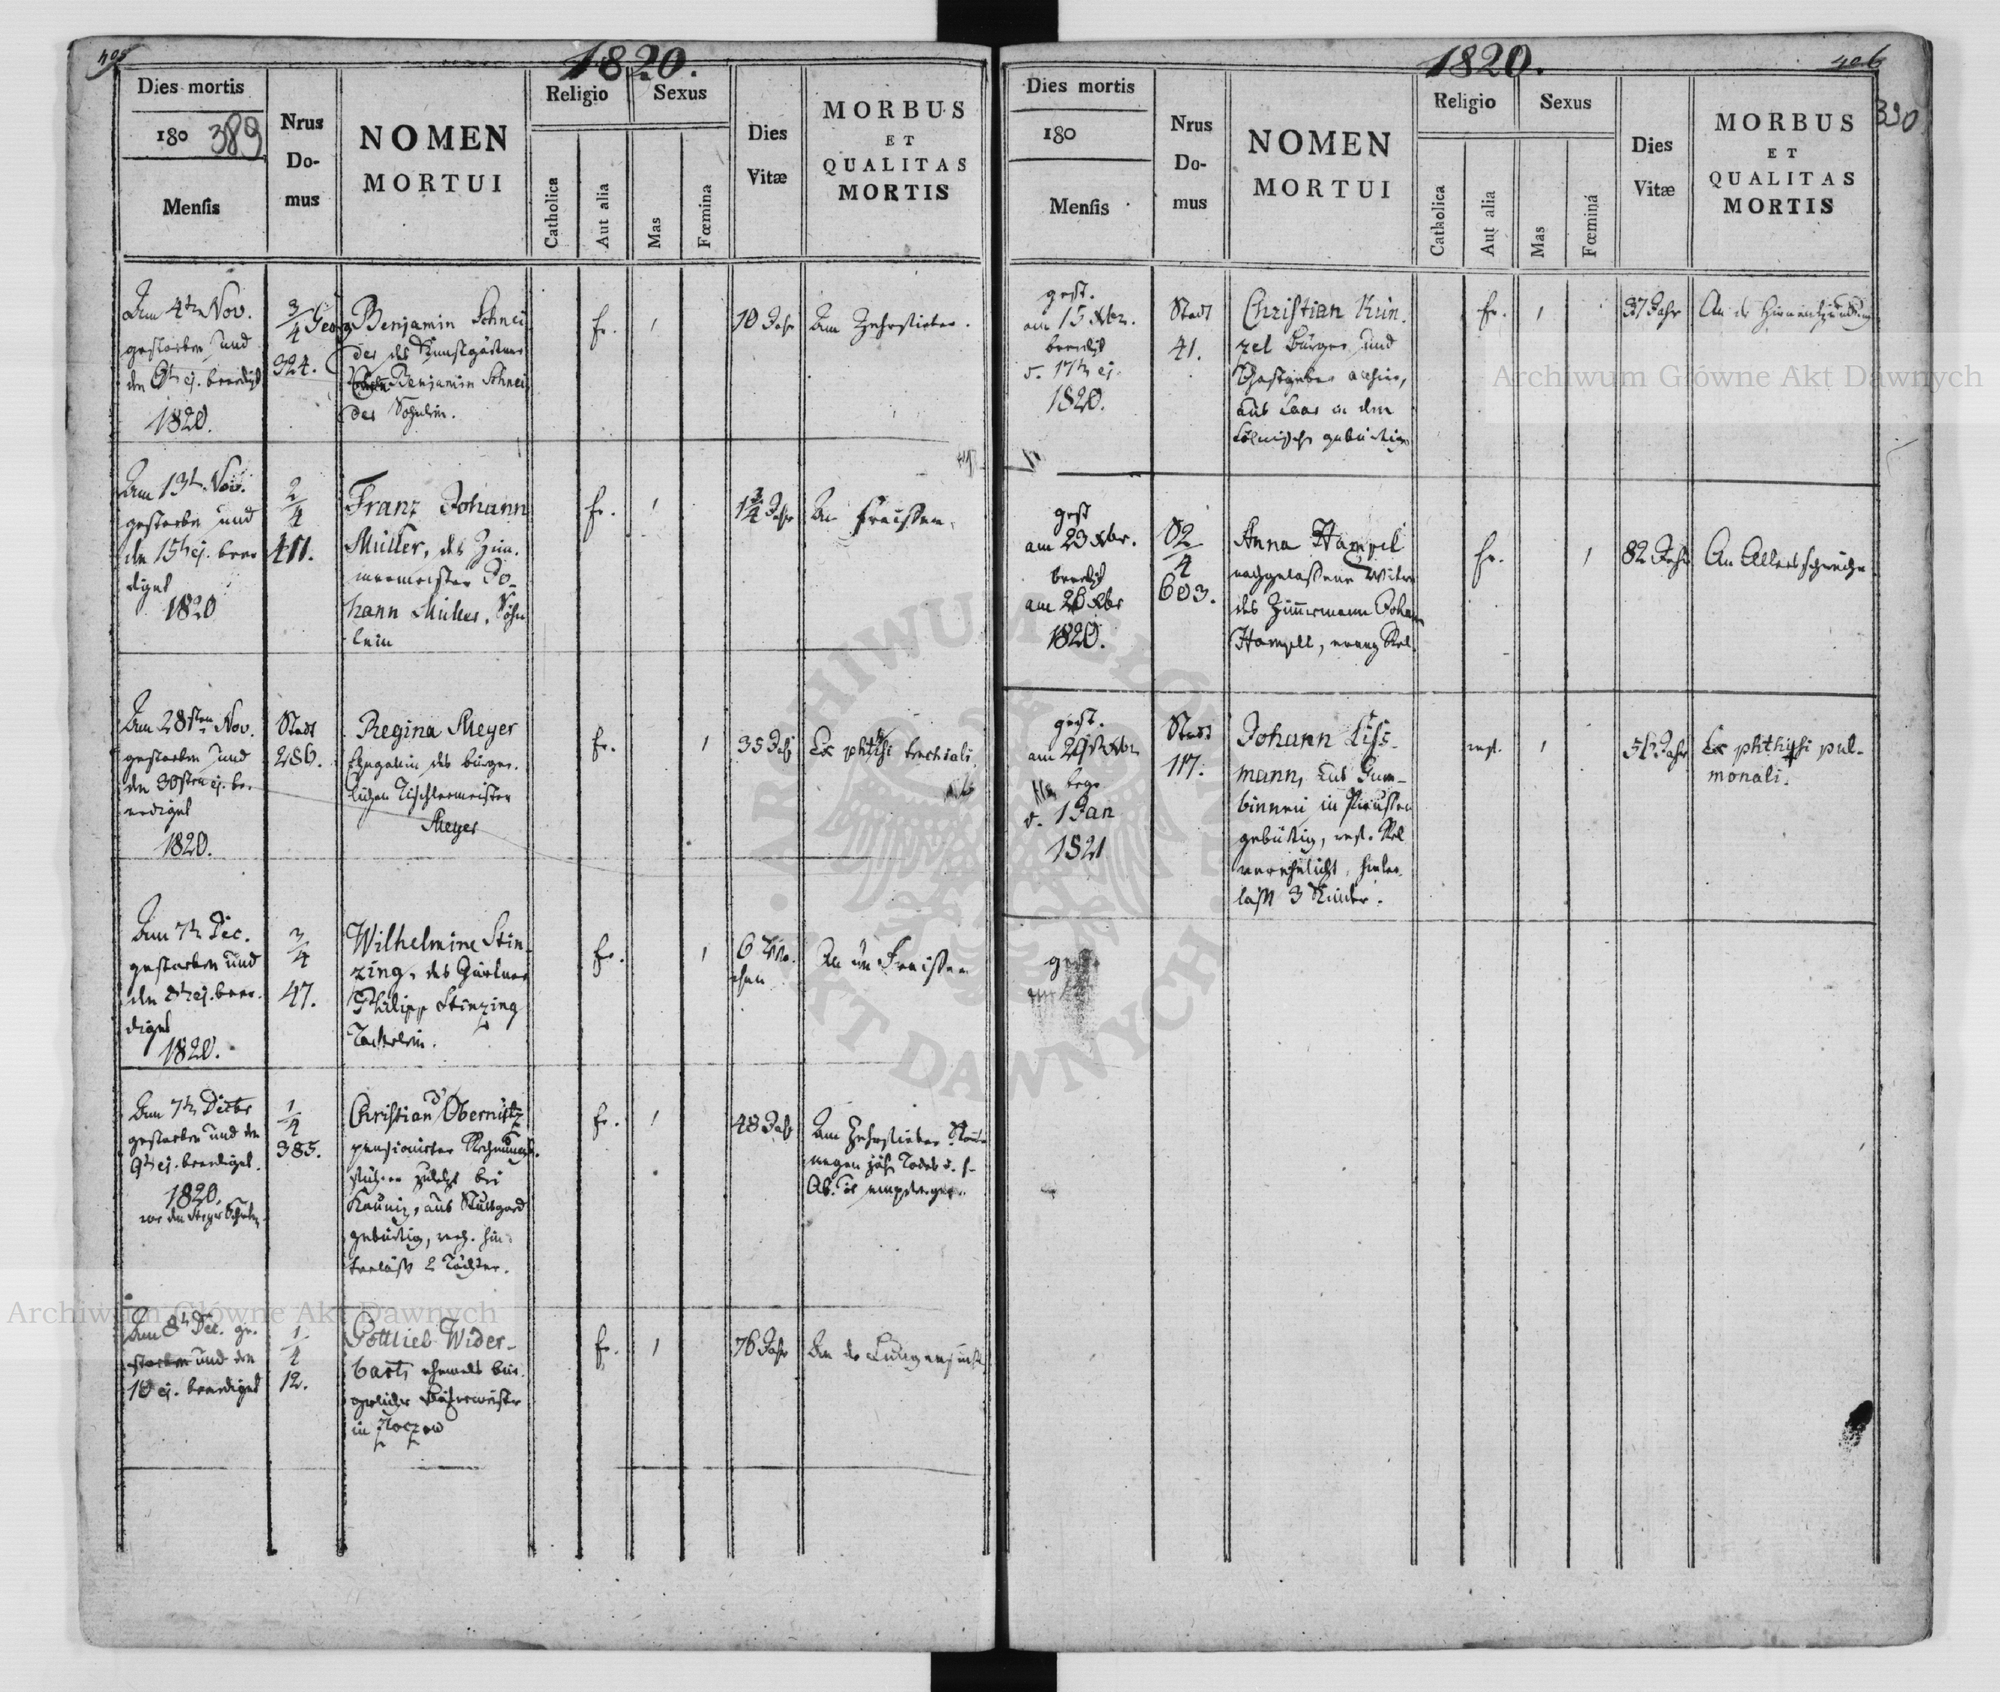 1820.
Dies mortis
180 389
Mensis
Nrus
Do-
mus
NOMEN
MORTUI
Religio
Catholica
Aut alia
Sexus
Mas
Fœmina
Dies
Vitæ
MORBUS
ET
QUALITAS
MORTIS
Am 4ten Nov.
gestorben und
den 6ten ej. beerdigt
1820.
3/4
324.
Georg Benjamin Schnei
der des Kunstgärtners
Benjamin Schnei
der Söhnlein.
10 Jahr
Am Zehrfieber.
Am 13ten Nov.
gestorben und
den 15ten ej. beer
digt
1820
2/4
411.
Franz Johann
Müller, des Zim-
mermeister Jo-
hann Müller, Söhn
lein
1 3/4 Jahr
An Fraisen.
Am 28sten Nov.
gestorben und
den 30sten ej. be-
erdiget
1820.
Stadt
286.
Regina Meyer
Ehegattin des bürger-
lichen Tischlermeister
Meyer
35 Jahr
Ex phthisi tracheali
Am 7ten Dec.
gestorben und
den ej. beer-
diget
1820.
3/4
47.
Wilhelmine Stin-
zing, des Gärtner
Philipp Stinzing
Töchterlein.
6 Wo-
chen
An den Fraisen
Am 7ten Decbr
gestorben und den
9ten ej. beerdiget.
1820.
1/4
385.
Christian Obernitz
pensionirter Rechnungs-
führer zuletzt bei
Kauniz, aus Stuttgard
gebürtig, hin-
terläßt 2 Töchter.
48 Jahr
Am Zehrfieber
wegen jäh. Todes
Am 8ten Dec. ge-
storben und den
10 ej. beerdiget
1/4
12.
Gottlieb Wider-
barth ehemals bür-
gerlicher
in Zloczow
76 Jahr
An der Lungensucht
1820.
406
390
Dies mortis
180
Mensis
Nrus
Do-
mus
NOMEN
MORTUI
Religio
Catholica
Aut alia
Sexus
Mas
Fœminá
Dies
Vitæ
MORBUS
ET
QUALITAS
MORTIS
gest.
am 15 Xbr.
beerdigt
d. 17ten ej.
1820.
Stadt
41.
Christian Kün-
zel Bürger und
Gastgeber allhier,
aus Laar in dem
Cölnischen gebürtig
37 Jahr
An der Hirnentzündung
gest
am 23 Xbr.
beerdigt
am 26 Xbr
1820.
82/4
603.
Anna Hampel
nachgelassene Witwe
des Zimmermann Johann
Hampell, evang Rel.
82 Jahr
An Altersschwäche
gest.
am 29sten Xbr
begr
d. 1 Jan
1821
Stadt
117.
Johann Liss-
mann, aus Gum-
binnen in Preussen
gebürtig, ref. Rel
verehelicht, hinter-
läßt 3 Kinder.
ref.
56 Jahr
Ex phthisi pul-
monali.
Archiwum Główne Akt Dawnych
Archiwum Główne Akt Dawnych
ARCHIWUM GŁÓWNE AKT DAWNYCH